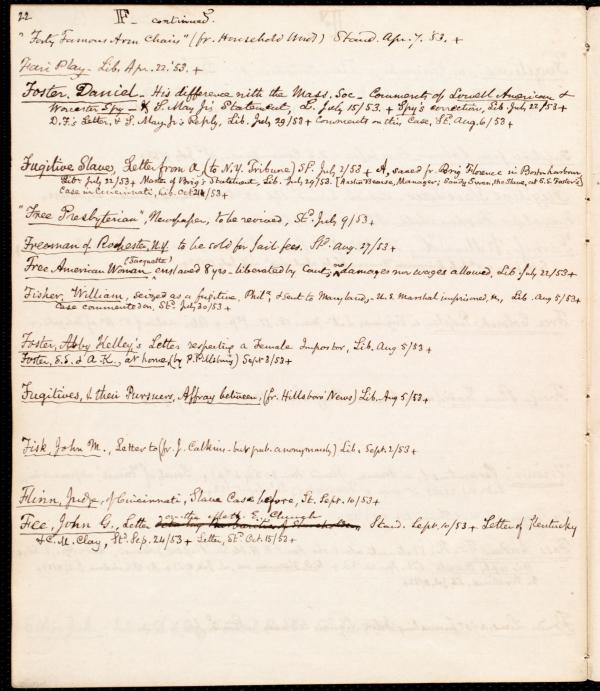 22
F - continued.
"Forty Famous Arm Chairs" (fr. Household Words) Stand. Apr. 7. 53. +
Fair Play - Lib. Apr. 22. '53. +
Foster, Daniel - His difference with the Mass. Soc - Comments of Lowell American &
Worcester Spy - S. May Jr's Statement, L. July 15/53. + Spy's correction, Lib. July 22/53 +
D.F.'s Letter, & S. May, Jr's Reply, Lib. July 29/53 + Comments on this Case, St. Aug. 6/53 +
Fugitive Slave, Letter from a (to N.Y. Tribune) St. July 2/53 + A, saved fr. Brig Florence in Boston harbour,
Lib. July 22/53 + Master of Brig's Statement, Lib. July 29/53. [Austin Bearse, Manager; Sandy Swan, the Slave, at S.S. Foster's]
Case in Cincinnati, Lib. Oct 21/53 +
"Free Presbyterian", Newspaper, to be revived, St. July 9/53 +
Freeman of Rochester, N.Y. to be sold for jail fees. St. Aug. 27/53 +
(Jacquette)
Free American Woman enslaved 8 yrs - liberated by Court, no damages nor wages allowed, Lib. July 22/53 +
Fisher, William, seized as a fugitive, Phila. & sent to Maryland - U.S. Marshal imprisoned, Lib. Aug 5/53 +
Case commented on, St. July 30/53 +
Foster, Abby Kelley's Letter respecting a Female Impostor, Lib. Aug 5/53 +
Foster, S.S. & A.K., at home, (by P. Pillsbury) Sept 3/53 +
Fugitives, & their Pursuers, Affray between, (fr. Hillsboro' News) Lib. Aug 5/53 +
Fisk, John M., Letter to (fr. J. Calkins - but pub. anonymously) Lib. Sept. 2/53 +
Flinn, Judge, of Cincinnati, Slave Case before, St. Sept. 10/53 +
on the Meth. E. Church
Fee, John G., Letter Stand. Sept. 10/53 + Letter of Kentucky
& C. M. Clay, St. Sep. 24/53 + Letter, St. Oct. 15/52 +